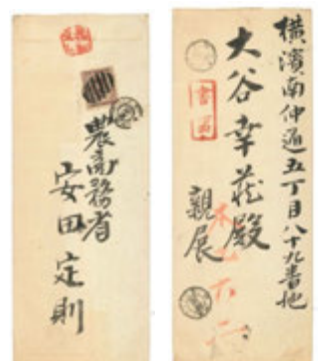 横濱南仲通五丁目八十九番地
大谷幸蔵殿
親展
書留
農商務省
安田定則